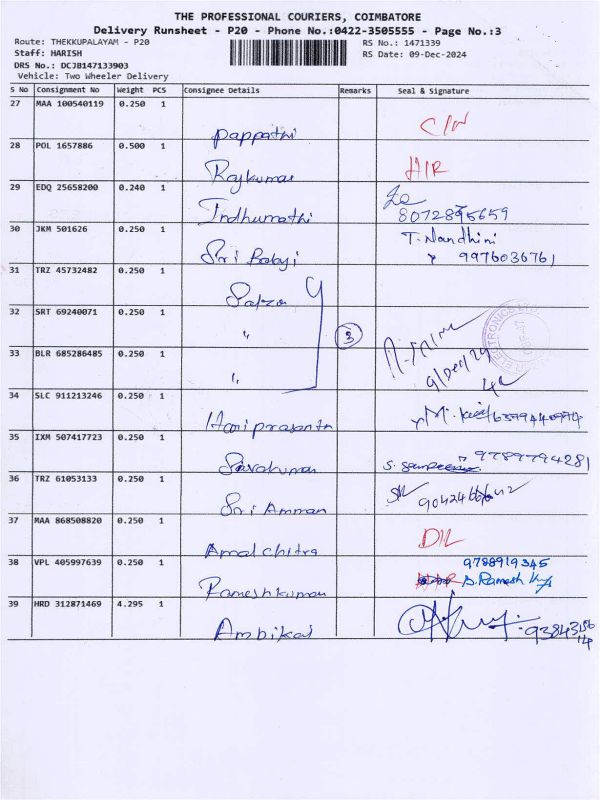 THE PROFESSIONAL COURIERS, COIMBATORE
Delivery Runsheet - P20 - Phone No.:0422-3505555 - Page No.:3
Route: THEKKUPALAYAM - P20 RS No.: 1471339
Staff: HARISH RS Date: 09-Dec-2024
DRS No.: DCJB147133903
Vehicle: Two Wheeler Delivery
S No Consignment No Weight PCS Consignee Details Remarks Seal & Signature
27 MAA 100540119 0.250 1
Pappathi C/N
28 POL 1657886 0.500 1
Rajkumar H/R
29 EDQ 25658200 0.240 1
Indhumathi 8072895659
30 JKM 501626 0.250 1 T. Nandhini
Sri Balaji 9976036761
31 TRZ 45732482 0.250 1
32 SRT 69240071 0.250 1
" 3
33 BLR 685286485 0.250 1 9/Dec/24
"
34 SLC 911213246 0.250 1
Hariprasanth
35 IXM 507417723 0.250 1
Saravanan 9789794281
36 TRZ 61053133 0.250 1
Sri Amman
37 MAA 868508820 0.250 1
Amal chitra D/L
38 VPL 405997639 0.250 1 9788919345
Rameshkumar S. Ramesh
39 HRD 312871469 4.295 1
Ambikai